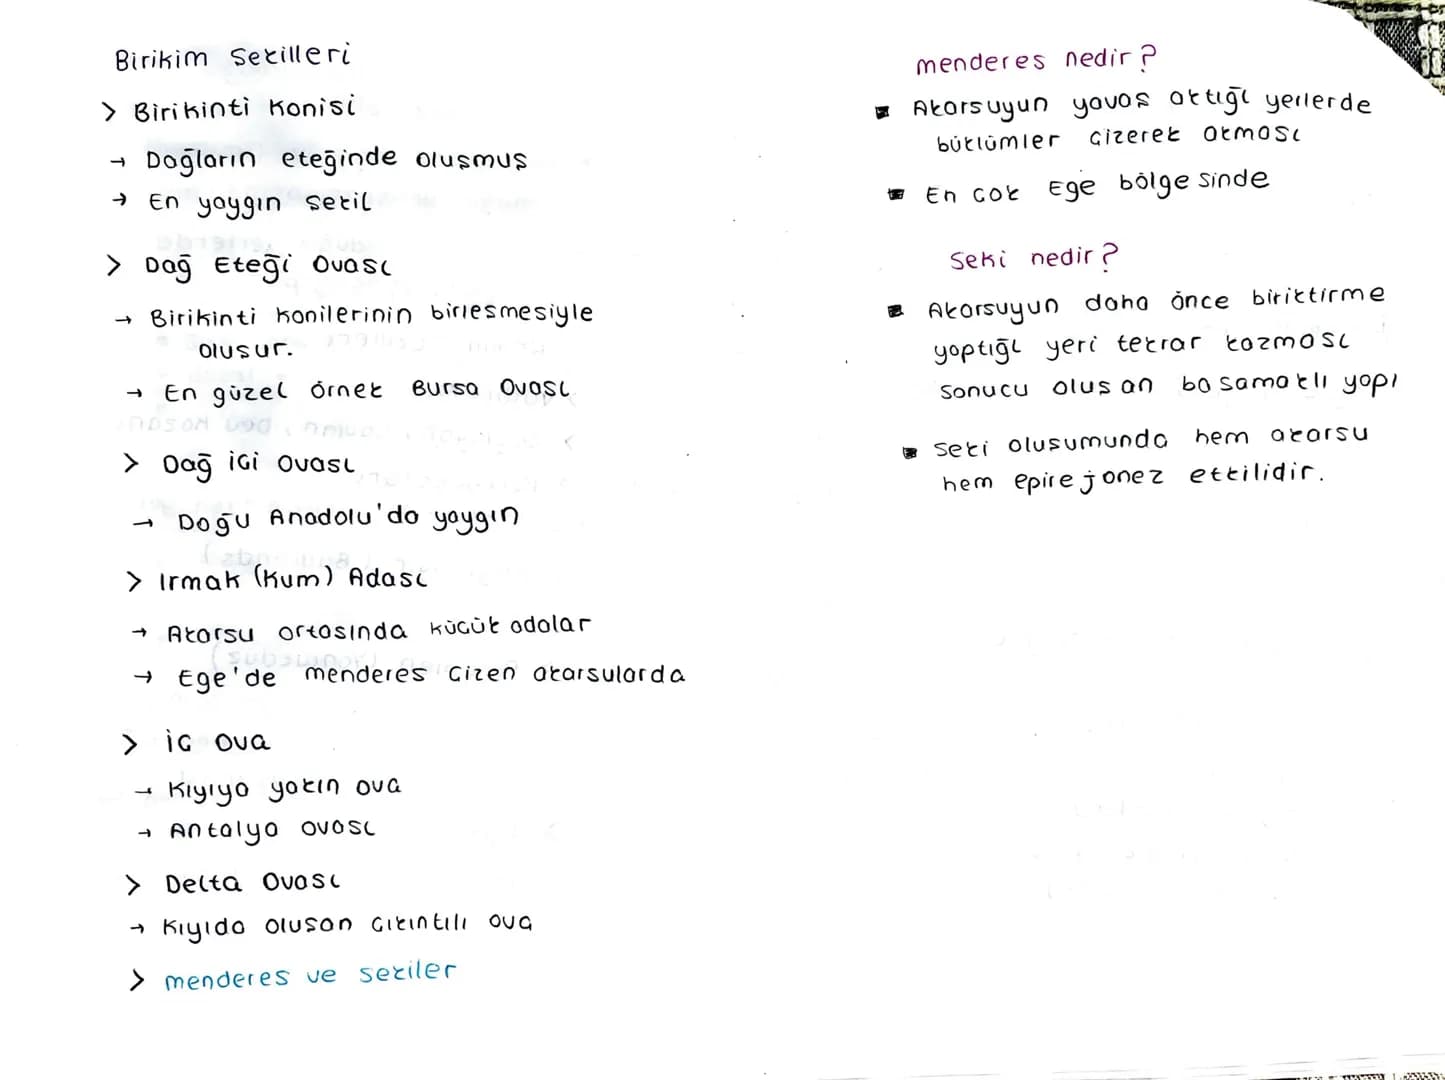 Birikim Sekilleri
> Birikinti Konisi
→ Dağların eteğinde oluşmuş
→ En yaygın sekil
> Dağ Eteği Ovası
→ Birikinti konilerinin birlesmesiyle
olusur.
→ En güzel örnek Bursa Ovası
> Dağ içi ovası
→ Doğu Anadolu'da yaygın
> Irmak (Kum) Adası
→ Akarsu ortasında küçük adalar
→ Ege'de menderes Çizen akarsularda
> iç ova
→ Kıyıya yakın ova
→ Antalya ovası
> Delta Ovası
→ Kıyıda oluson çıkıntılı ova
> menderes ve sekiler
menderes nedir?
▪ Akarsuyun yavas aktığı yerlerde
büklümler çizerek akması
▪ En çok Ege bölgesinde
Seki nedir?
▪ Akarsuyun daha önce biriktirme
yaptığı yeri tekrar kazması
sonucu olusan basamaklı yapı
▪ Seki olusumunda hem akarsu
hem epirejonez etkilidir.